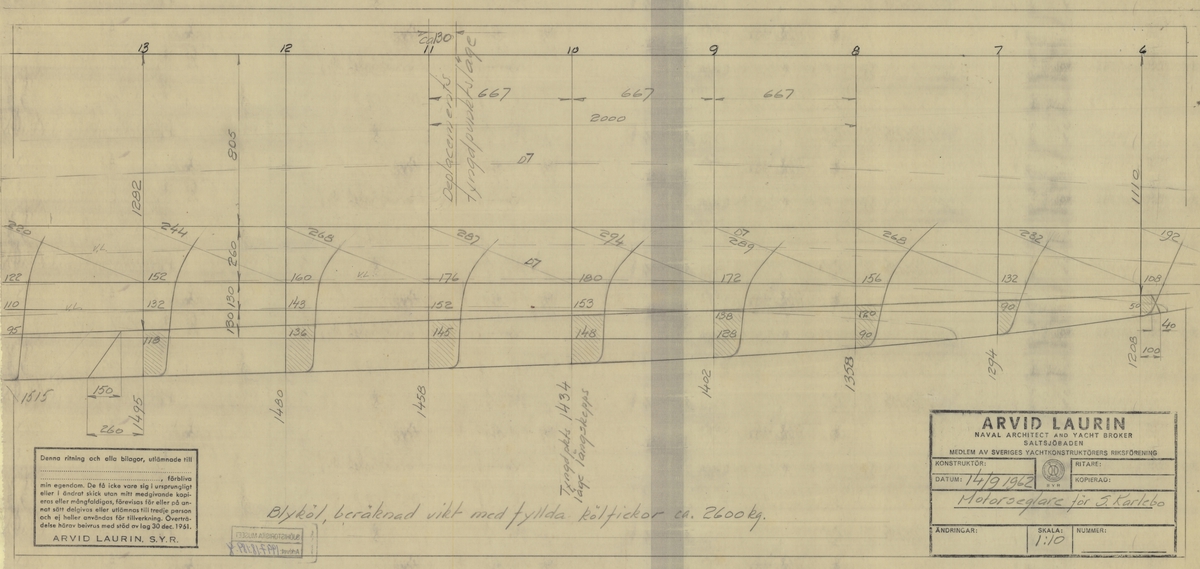 ca 130
13 12 11 10 9 8 7 6
667 667 667
2000
Deplacements
tyngdpunktsläge
D7
805
1282
1110
220 244 268 287 294 D7 289 268 232 192
V.L. 260 D7
122 152 160 V.L. 176 180 172 156 132 108
110 V.L. 132 130 143 152 153 158 120 90 50
95 118 130 136 145 148 128 90 40
100
150
260
1515 1495 1480 1458 1434 1402 1358 1294 1208
Tyngdpkts
läge långskepps
Blyköl, beräknad vikt med fyllda kölfickor ca. 2600 kg.
Denna ritning och alla bilagor, utlämnade till
, förbliva
min egendom. De få icke vare sig i ursprungligt
eller i ändrat skick utan mitt medgivande kopi-
eras eller mångfaldigas, förevisas för eller på an-
nat sätt delgivas eller utlämnas till tredje person
och ej heller användas för tillverkning. Överträ-
delse härav beivras med stöd av lag 30 dec. 1961.
ARVID LAURIN, S.Y.R.
ARVID LAURIN
NAVAL ARCHITECT AND YACHT BROKER
SALTSJÖBADEN
MEDLEM AV SVERIGES YACHTKONSTRUKTÖRERS RIKSFÖRENING
KONSTRUKTÖR: RITARE:
DATUM: 14/9 1962 SYR KOPIERAD:
Motorseglare för S. Karlebo
ÄNDRINGAR: SKALA: NUMMER:
1:10